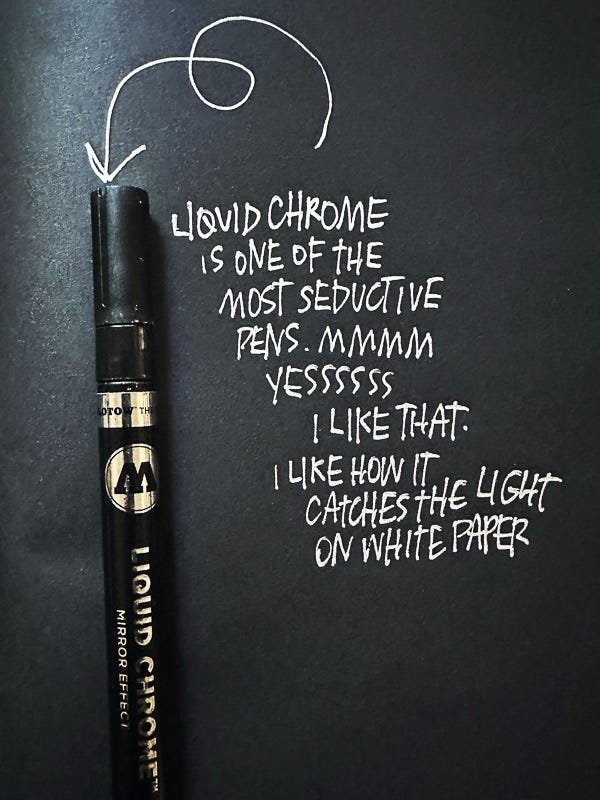 LIQUID CHROME
IS ONE OF THE
MOST SEDUCTIVE
PENS. MMMM
YESSSSSS
I LIKE THAT.
I LIKE HOW IT
CATCHES THE LIGHT
ON WHITE PAPER
LOTOW™ TH
M
LIQUID CHROME™
MIRROR EFFECT